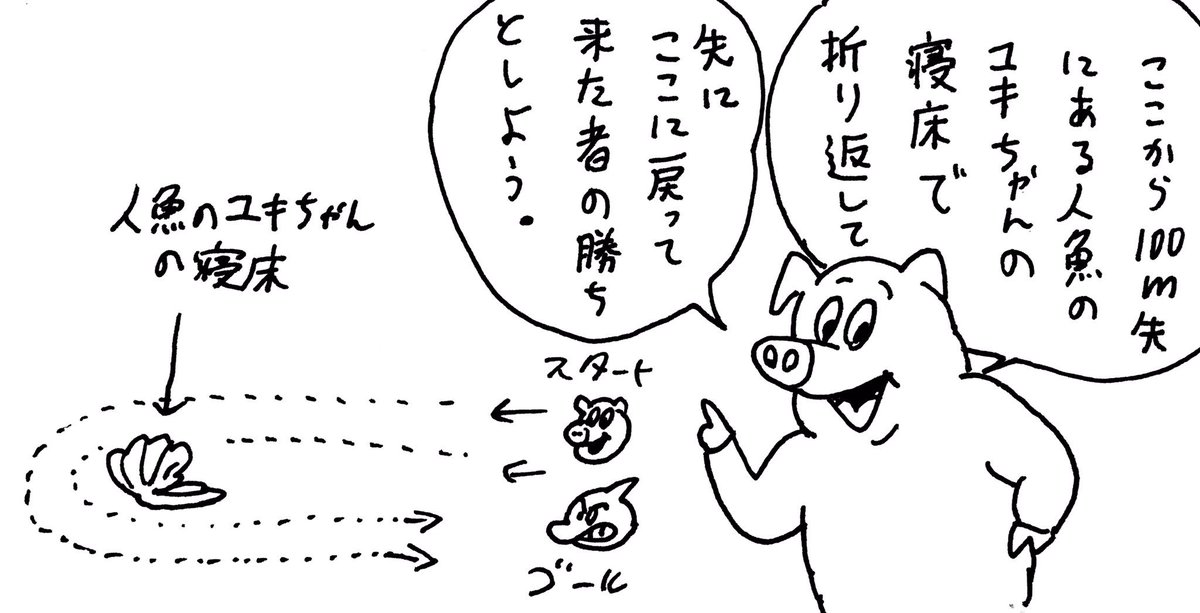 ここから100m先
にある人魚の
ユキちゃんの
寝床で
折り返して
先に
ここに戻って
来た者の勝ち
としよう.
人魚のユキちゃん
の寝床
スタート
ゴール